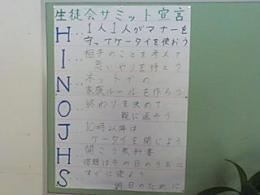 生徒会サミット宣言
H…1人1人がマナーを
守ってケータイを使おう
I…相手のことを考え
思いやりを持とう
N…ネットの
家族ルールを作ろう
O…終わりを決めて
親に返そう
J…10時以降は
ケータイを閉じよう
H…開こう教科書
S…宿題はその日のうちに
すぐに使おう
明日のために